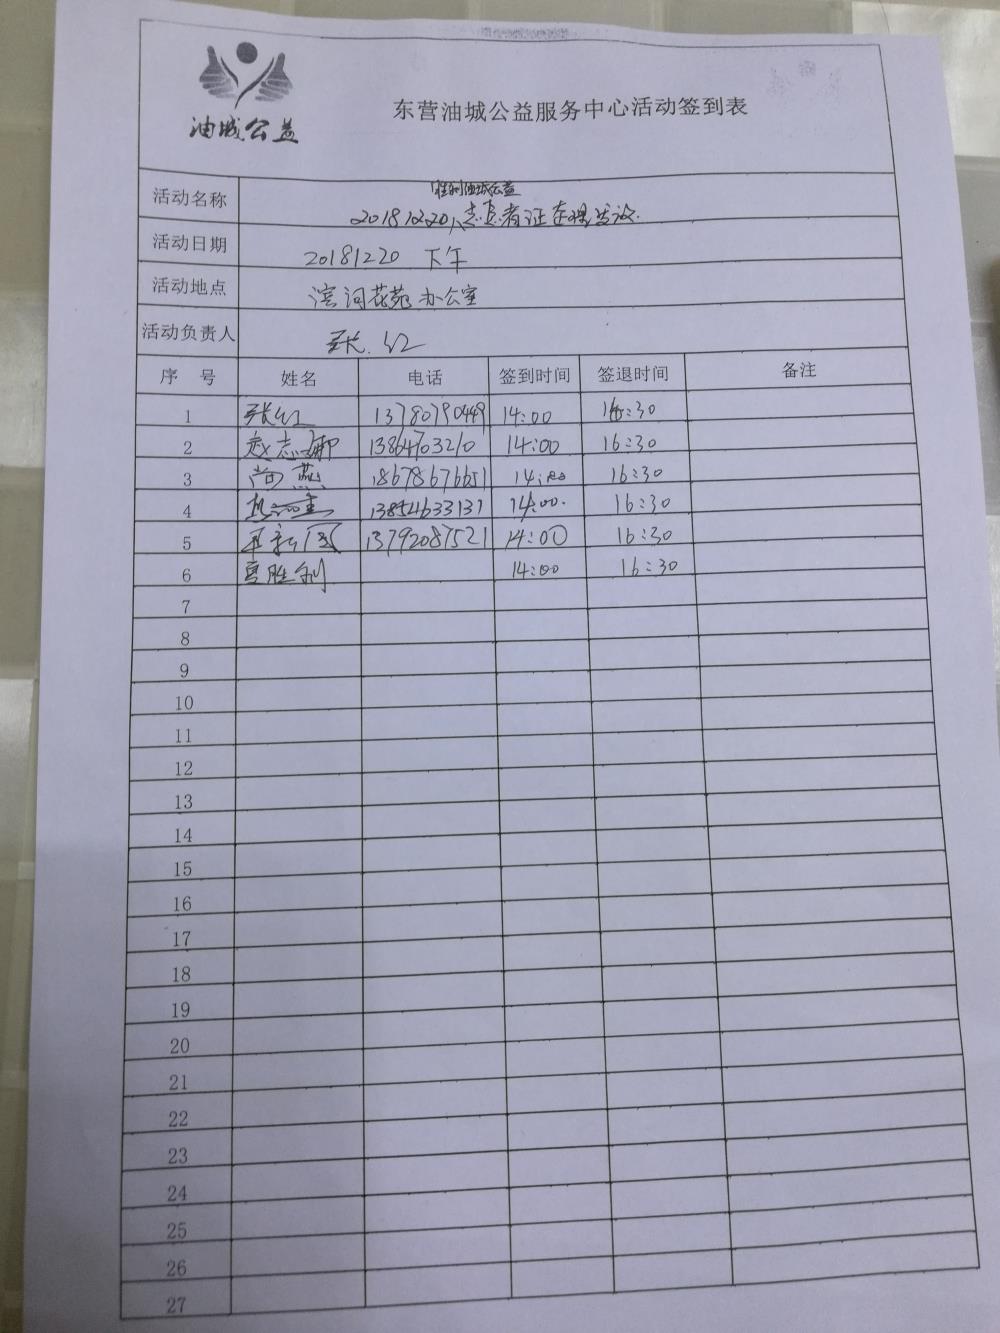 油城公益
东营油城公益服务中心活动签到表
活动名称 胜利油城公益 20181220志愿者证办理
活动日期 20181220 下午
活动地点 滨河花苑办公室
活动负责人 张红
序号 姓名 电话 签到时间 签退时间 备注
1 张红 13780790449 14:00 16:30
2 赵志娜 13864703210 14:00 16:30
3 尚燕 18678676651 14:00 16:30
4 13854633137 14:00 16:30
5 王新国 13792087521 14:00 16:30
6 胜利 14:00 16:30
7
8
9
10
11
12
13
14
15
16
17
18
19
20
21
22
23
24
25
26
27